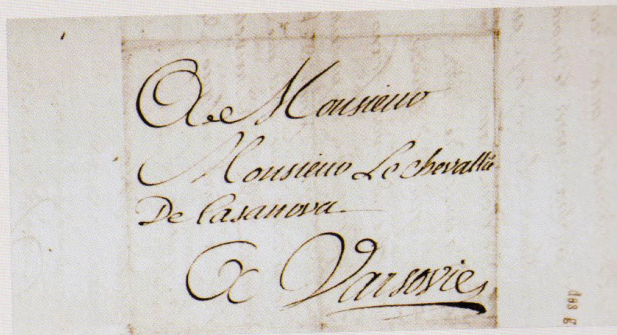 A Monsieur
Monsieur Le chevallie
De Casanova
A Varsovie